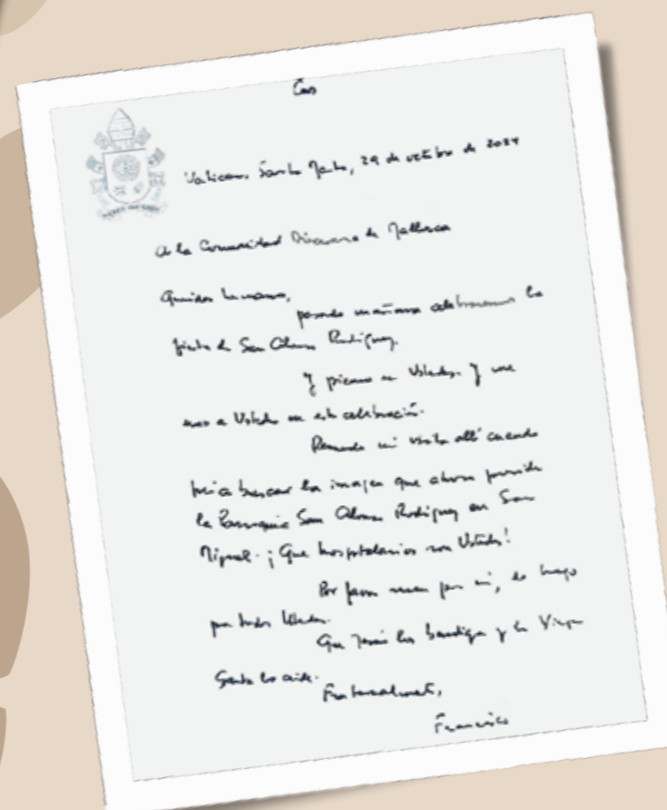 Vaticano, Santa Marta, 29 de octubre de 2024
A la Comunidad Diocesana de Mallorca
Queridos hermanos,
pasado mañana celebramos la
fiesta de San Alonso Rodríguez.
Y pienso en Ustedes. Y me
uno a Ustedes en esta celebración.
Recuerdo mi visita allí cuando
fui a buscar la imagen que ahora preside
la Parroquia San Alonso Rodríguez en San
Miguel. ¡Que hospitalarios son Ustedes!
Por favor recen por mi, lo hago
por todos Ustedes.
Que Jesús los bendiga y la Virgen
Santa los cuide.
Fraternalmente,
Francisco